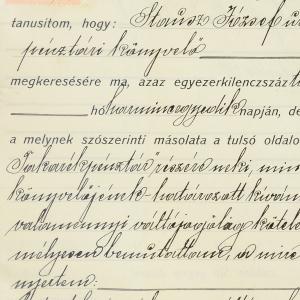 tanusítom, hogy: Stausz József ú
pénztári könyvelő
megkeresésére ma, azaz egyezerkilencszáz
hó harmincegyedik napján, de
a melynek szószerinti másolata a tulsó oldalo
Takarékpénztár" részére neki, min
könyvelőjének határozott kíván
valamennyi váltójogilag kötele
mélyesen bemutattam, a mire
nyertem: